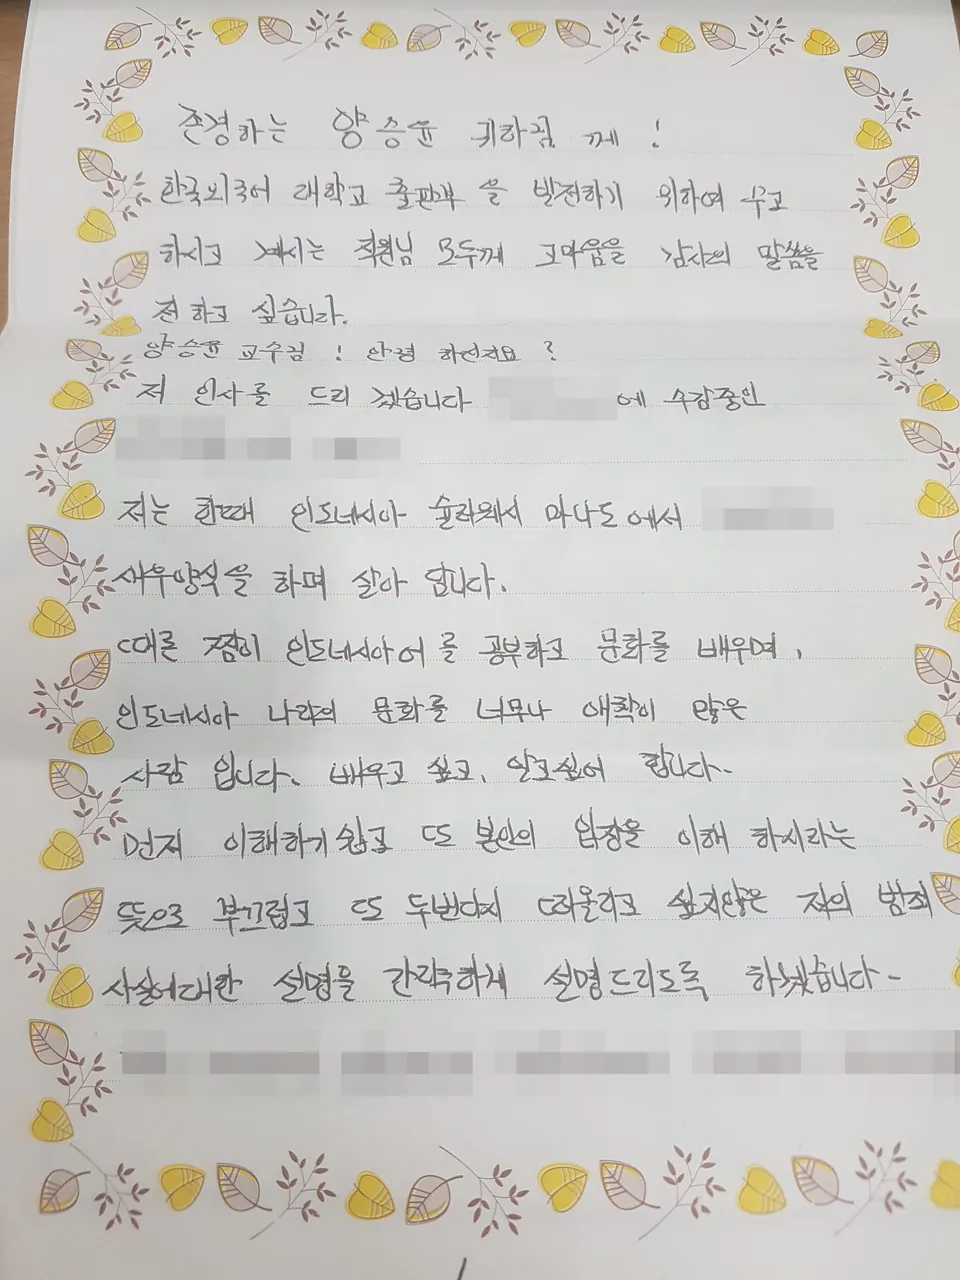 존경하는 양승윤 귀하님 께 !
한국외국어 대학교 출판부 을 발전하기 위하여 수고
하시고 계시는 직원님 모두께 고마움을 감사의 말씀을
전 하고 싶습니다.
양승윤 교수님 ! 안녕 하신지요 ?
저 인사를 드리 겠습니다 에 수감중인
저는 한때 인도네시아 술라웨시 마나도에서
새우양식을 하며 살아 답니다.
때론 점이 인도네시아어를 공부하고 문화를 배우며,
인도네시아 나라의 문화를 너무나 애착이 많은
사람 입니다. 배우고 싶고, 알고싶어 합니다-
먼저 이해하기 쉽고 또 본인의 입장을 이해 하시라는
뜻으로 부끄럽고 또 두번다시 떠올리고 싶지않은 저의 범죄
사실에대한 설명을 간략하게 설명드리도록 하겠습니다-